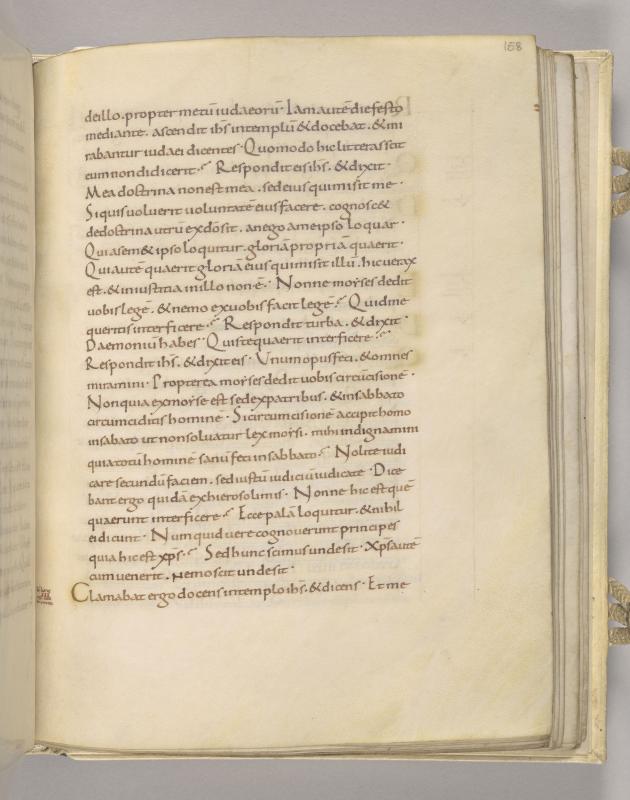 158
deillo. propter metū iudaeorū· Iam autē die festo
mediante. ascendit ihs̄ in templū & docebat. & mi
rabantur iudaei dicentes· Quomodo hic litteras scit
cum non didicerit· Respondit eis ihs̄. & dixit·
Mea doctrina non est mea. sed eius qui misit me·
Si quis uoluerit uoluntatē eius facere. cognosc&
de doctrina utrū ex dō sit. an ego a me ipso loquar·
Qui a sem&ipso loquitur. gloriā propriā quaerit·
Qui autē quaerit gloriā eius qui misit illū. hic uerax
est. & iniustitia in illo non ē· Nonne moyses dedit
uobis legē. & nemo ex uobis facit legē· Quid me
queritis interficere· Respondit turba. & dixit·
Daemoniū habes· Quis te quaerit interficere·
Respondit ihs̄. & dixit eis· Unum opus feci. & omnes
miramini· Propterea moyses dedit uobis circūcisionē·
Non quia ex moyse est sed ex patribus. & in sabbato
circumciditis hominē· Si circumcisionē accipit homo
in sabbato ut non soluatur lex moysi. mihi indignamini
quia totū hominē sanū feci in sabbato· Nolite iudi
care secundū faciem. sed iustū iudiciū iudicate· Dice
bant ergo quidā ex hierosolimis· Nonne hic est quē
quaerunt interficere· Ecce palā loquitur. & nihil
ei dicunt· Numquid uere cognouerunt principes
quia hic est xp̄s· Sed hunc scimus unde sit· Xp̄s autē
cum uenerit. nemo scit unde sit·
Clamabat ergo docens in templo ihs̄. & dicens· Et me